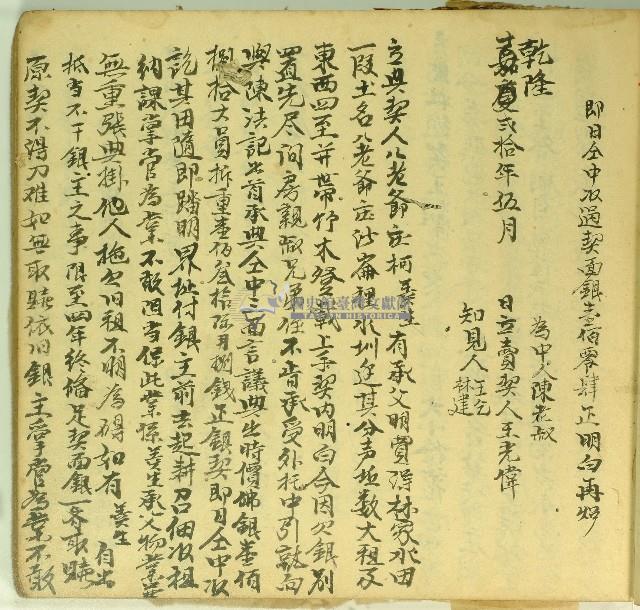 即日仝中收過契面銀壹佰零肆正明白再炤
為中人陳老叔
乾隆
嘉慶貳拾年伍月 日立賣契人王光偉
知見人王乞
林建
立典契人八老爺庄柯善生有承父明買得林家水田
一段土名八老爺庄沙崙裡水圳邊其分声坵数大租及
東西四至并帶竹木登載上手契内明白今因欠銀別
置先尽问房親叔兄弟侄不肯承受外托中引就向
與陳法記出首承典仝中三面言議典出時價佛銀壹佰
捌拾大員折重壹佰貳拾 捌錢正銀契即日仝中收
訖其田隨即踏明界址付銀主前去起耕召佃收租
納課掌管為業不敢阻当保此業係善生承父物業並
無重張典掛他人拖欠旧租不明為碍如有善生自出
抵当不干銀主之事限至四年終俻足契面銀一齐取贖
原契不得刁难如無取贖依旧銀主掌管為業不敢
國史館臺灣文獻館
TAIWAN HISTORICA